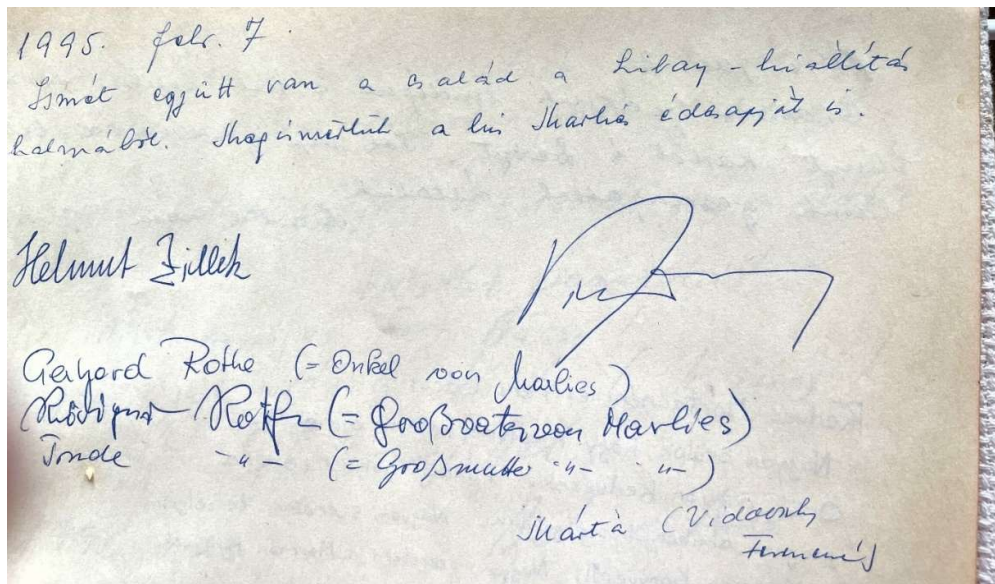 1995. febr. 7.
Ismét együtt van a család a Libay-kiállítás
kalmából. Megismertük a kis Marliés édesapját is.
Helmut Zillek
Gerhard Rothe (= Onkel von Marlies)
Rothe (= Großvater von Marlies)
-"- (= Großmutter -"- -"-)
Márta (Vidovszky
Ferencné)